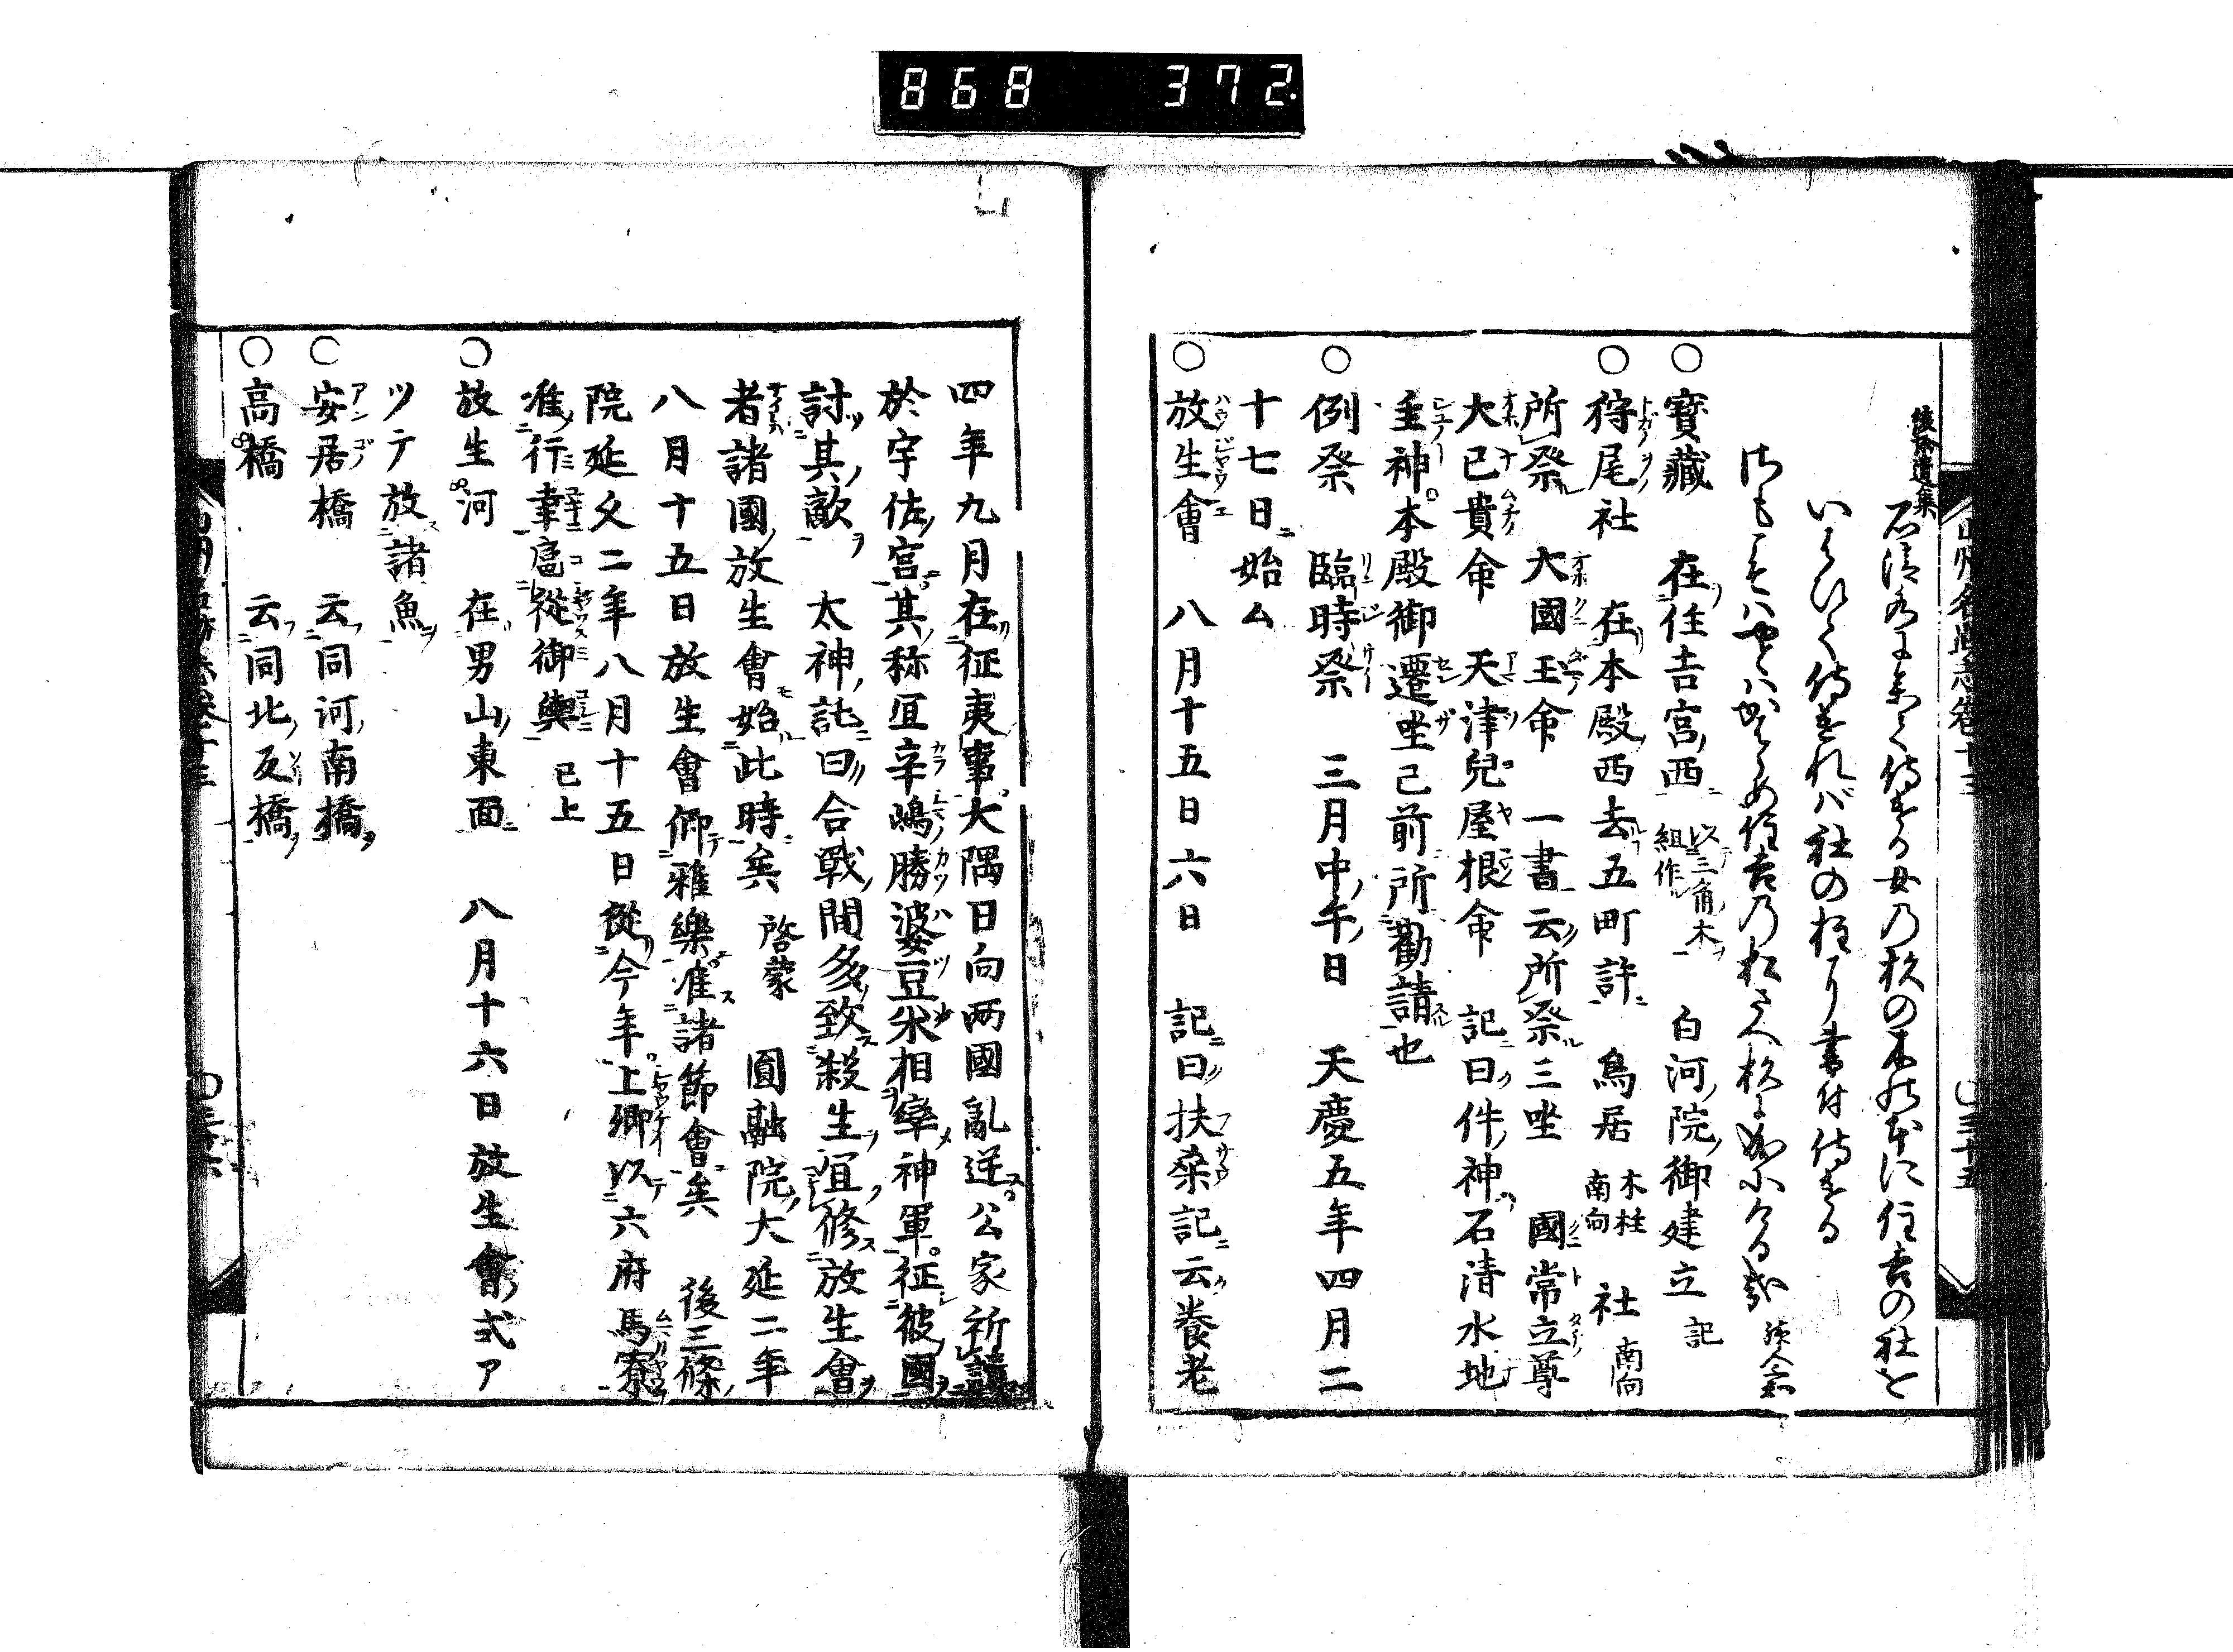 868 372
後拾遺集
石清水に参りて侍ける女の杦の木のもとに住吉の社を
いはひて侍けれバ社の柱に書付侍ける
○寶藏 在住吉宮西 以三角木組作 白河院御建立 記
○狩尾社 在本殿西去五町許 鳥居 木柱南向 社 南向
所祭 大國玉命 一書云所祭三坐 國常立尊
大己貴命 天津兒屋根命 記曰件神石清水地
主神本殿御遷坐已前所勸請也
○例祭 臨時祭 三月中午日 天慶五年四月二
十七日始ム
○放生會 八月十五日六日 記曰扶桑記云養老
四年九月在征夷事大隅日向兩國亂逆公家祈請
於宇佐宮其称冝辛嶋勝婆豆米相率神軍征彼國
討其敵 太神託曰合戰間多致殺生宜修放生會
者諸國放生會始此時矣 啓蒙 圓融院大延二年
八月十五日放生會仰雅樂准諸節會矣 後三條
院延久二年八月十五日從今年上卿以六府馬寮
准行幸扈從御輿 已上
○放生河 在男山東面 八月十六日放生會式ア
ツテ放諸魚
○安居橋 云同河南橋
○高橋 云同北反橋